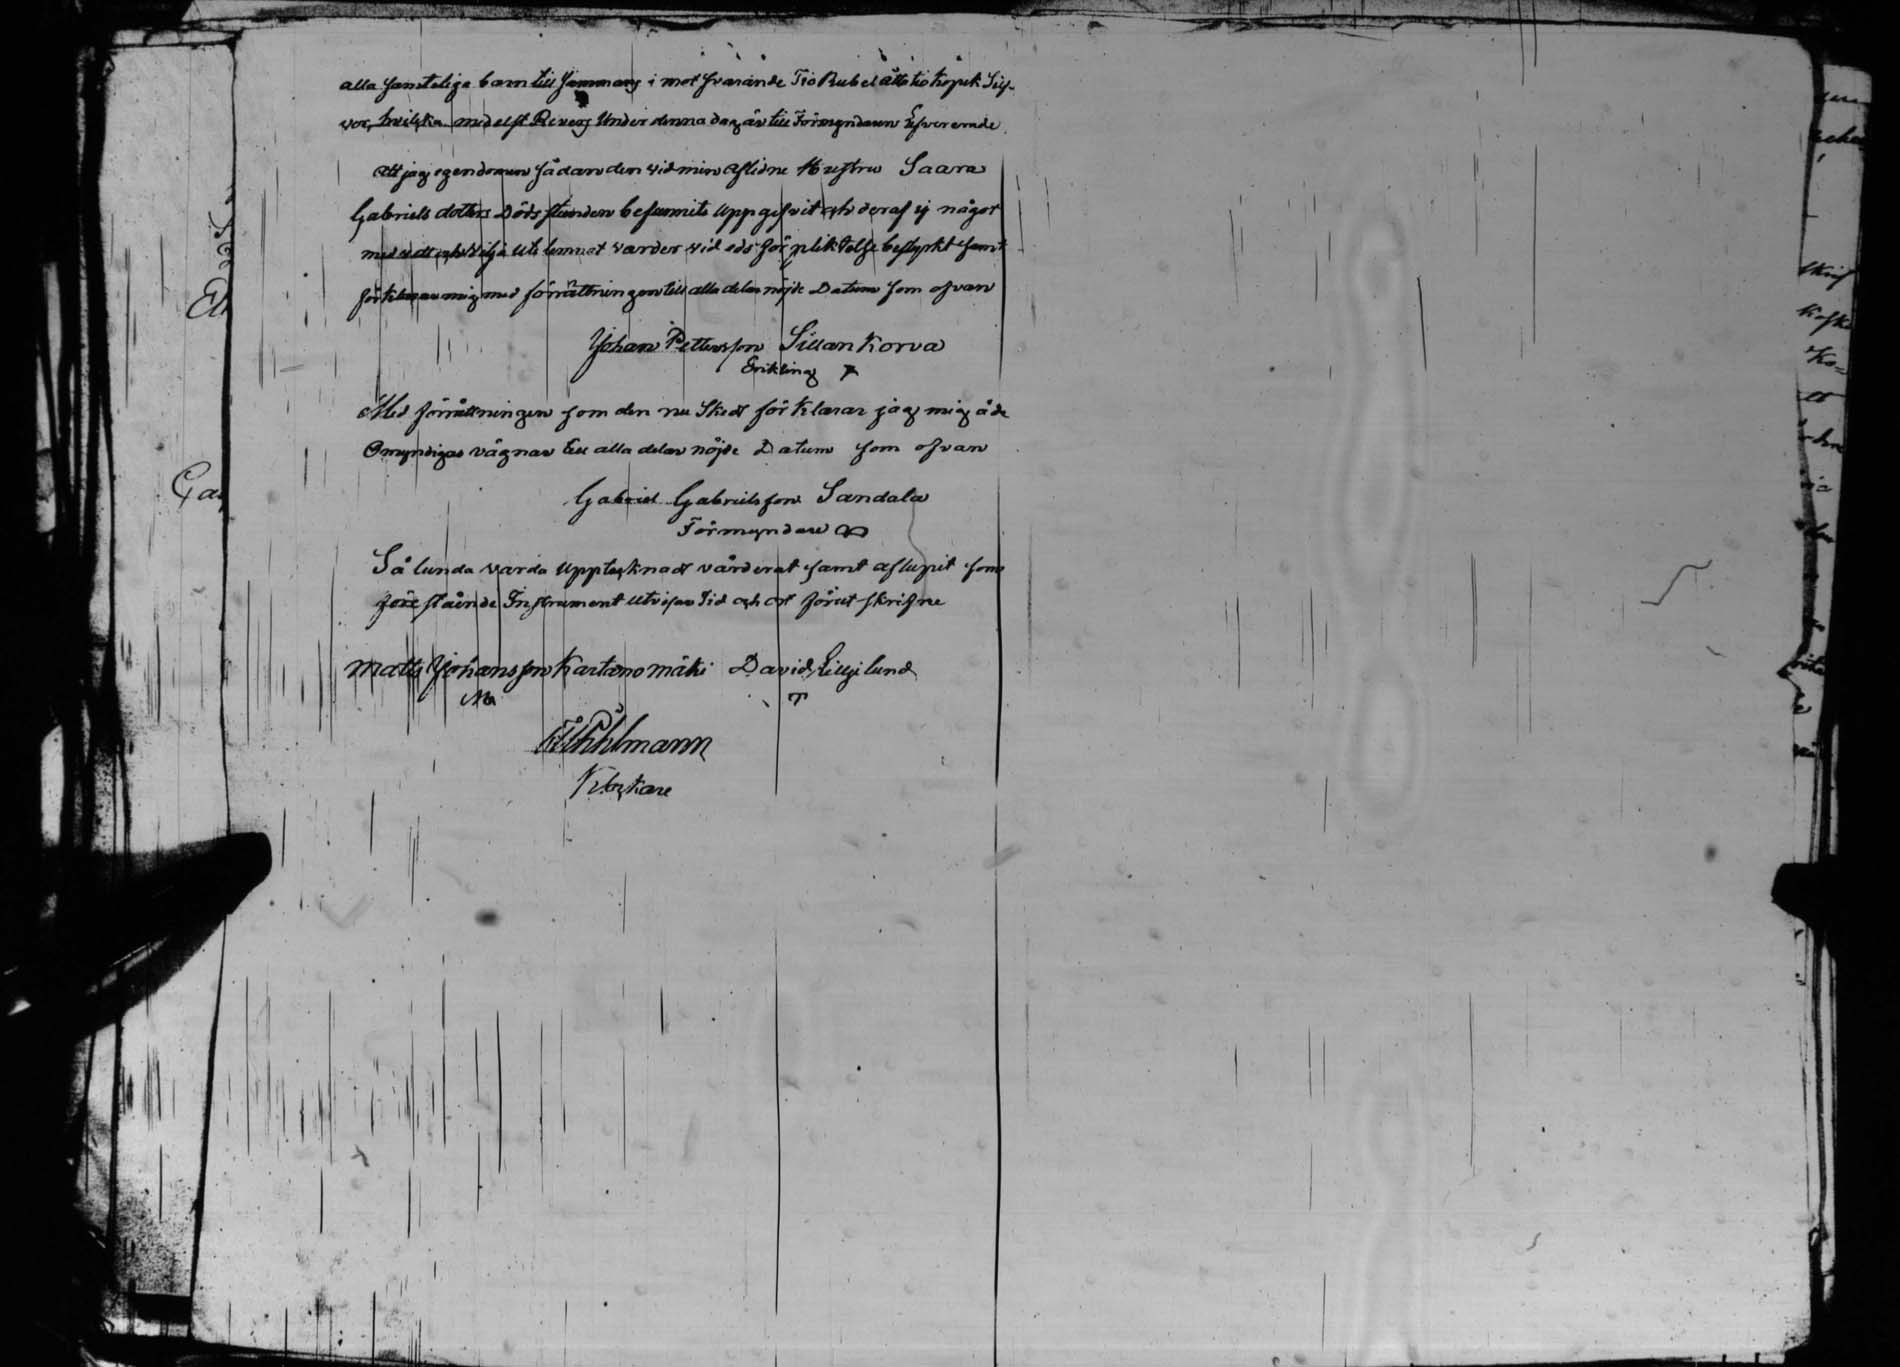 alla samtelige barn till sammans i mot svarande Tio Rubel åttatio kopek Silf-
ver, hvilka medelst Revers Under denna dag är till Förmyndaren Lefvererade
Att jag egendomen sådan den vid min aflidne Hustru Saara
Gabriels dotters Dödsstunden befunnits Uppgifvit och deraf ej något
med vett och vilja Utelemnat varder vid eds förpliktelse bestyrkt samt
förklarar mig med förrättningen till alla delar nöjde Datum som ofvan
Johan Pettersson Sillankorva
Enkling
Med förrättningen som den nu Skedt förklarar jag mig å de
Omyndigas vägnar till alla delar nöjde Datum som ofvan
Gabriel Gabrielsson Sandala
Förmyndare
Sålunda varda Upptecknadt värderat samt aflupit som
förestående Instrument utvisar Tid och ort förut skrifne
Matts Johansson Kartanomäki David Lilljelund
Pihlmann
Klockare
Ga